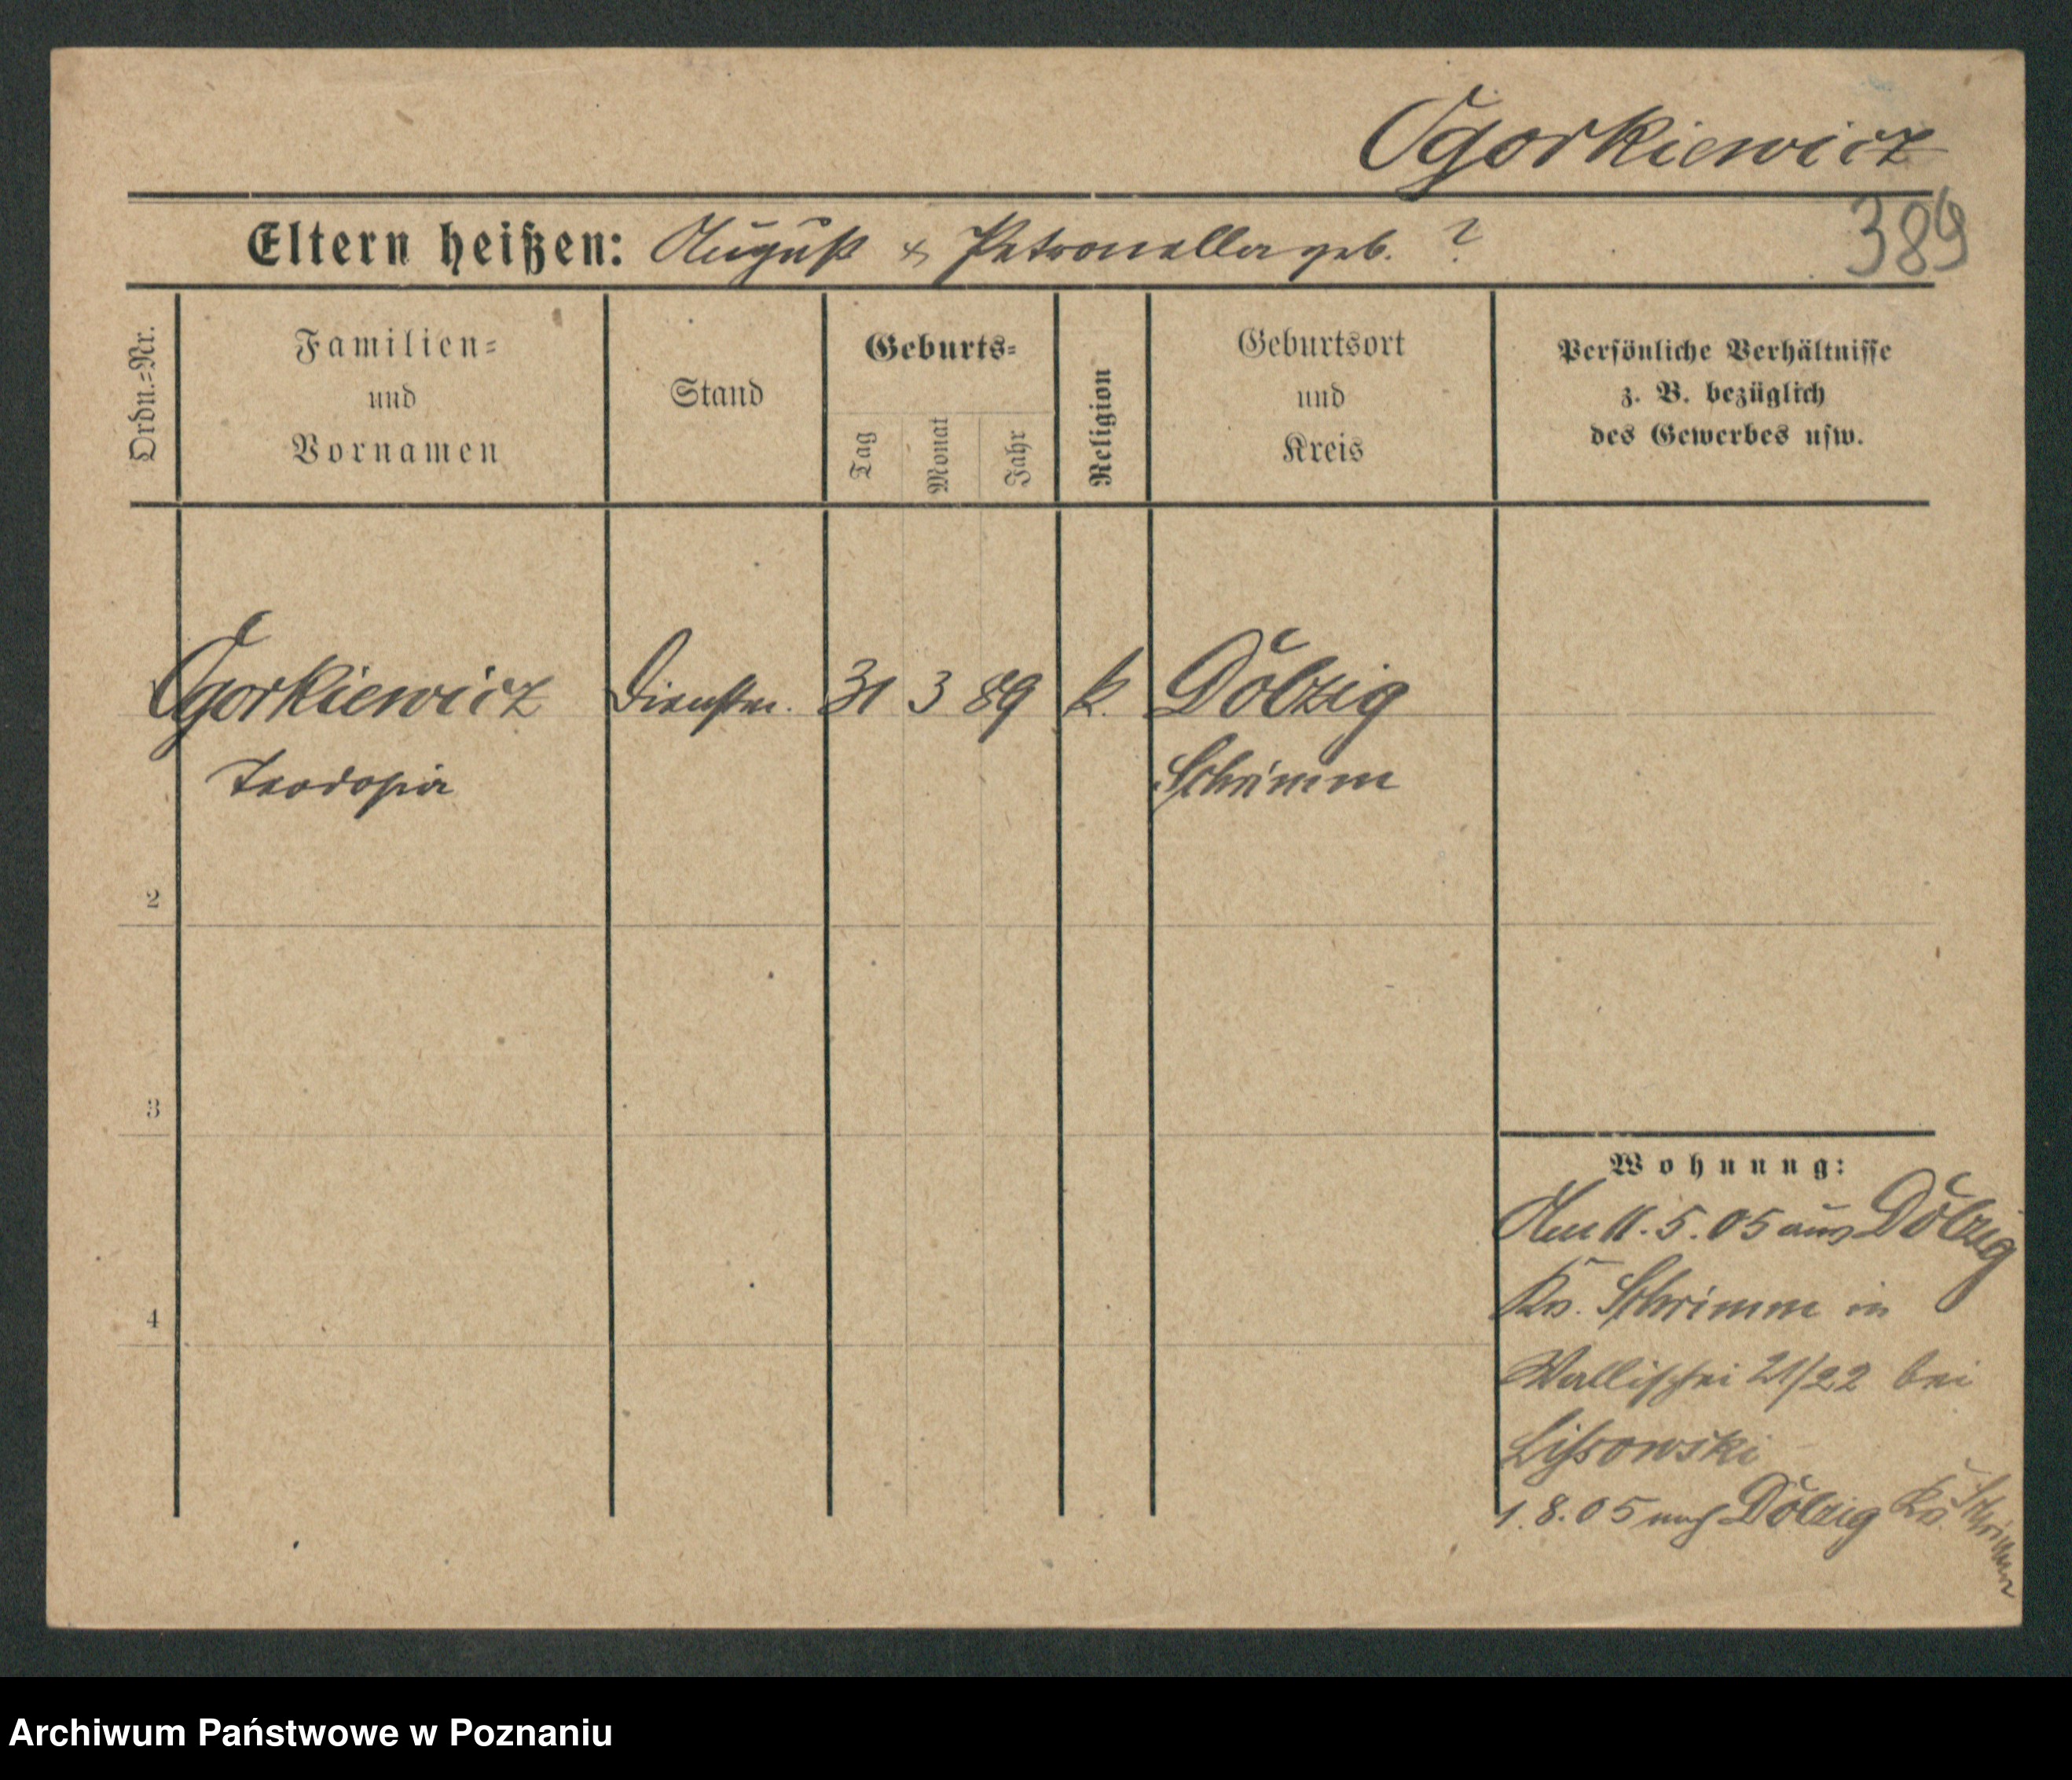 Ogorkiewicz
Eltern heißen: August & Petronella geb. ?
389
Ordn.=Nr.
Familien=
und
Vornamen
Stand
Geburts=
Tag
Monat
Jahr
Religion
Geburtsort
und
Kreis
Persönliche Verhältnisse
z. B. bezüglich
des Gewerbes usw.
Ogorkiewicz Dienstm. 31 3 89 k. Dolzig
Teodosia Schrimm
2
3
4
Wohnung:
Am 11. 5. 05 aus Dolzig
Kr. Schrimm in
Wallischei 21/22 bei
Lissowski
1. 8. 05 nach Dolzig Kr. Schrimm
Archiwum Państwowe w Poznaniu